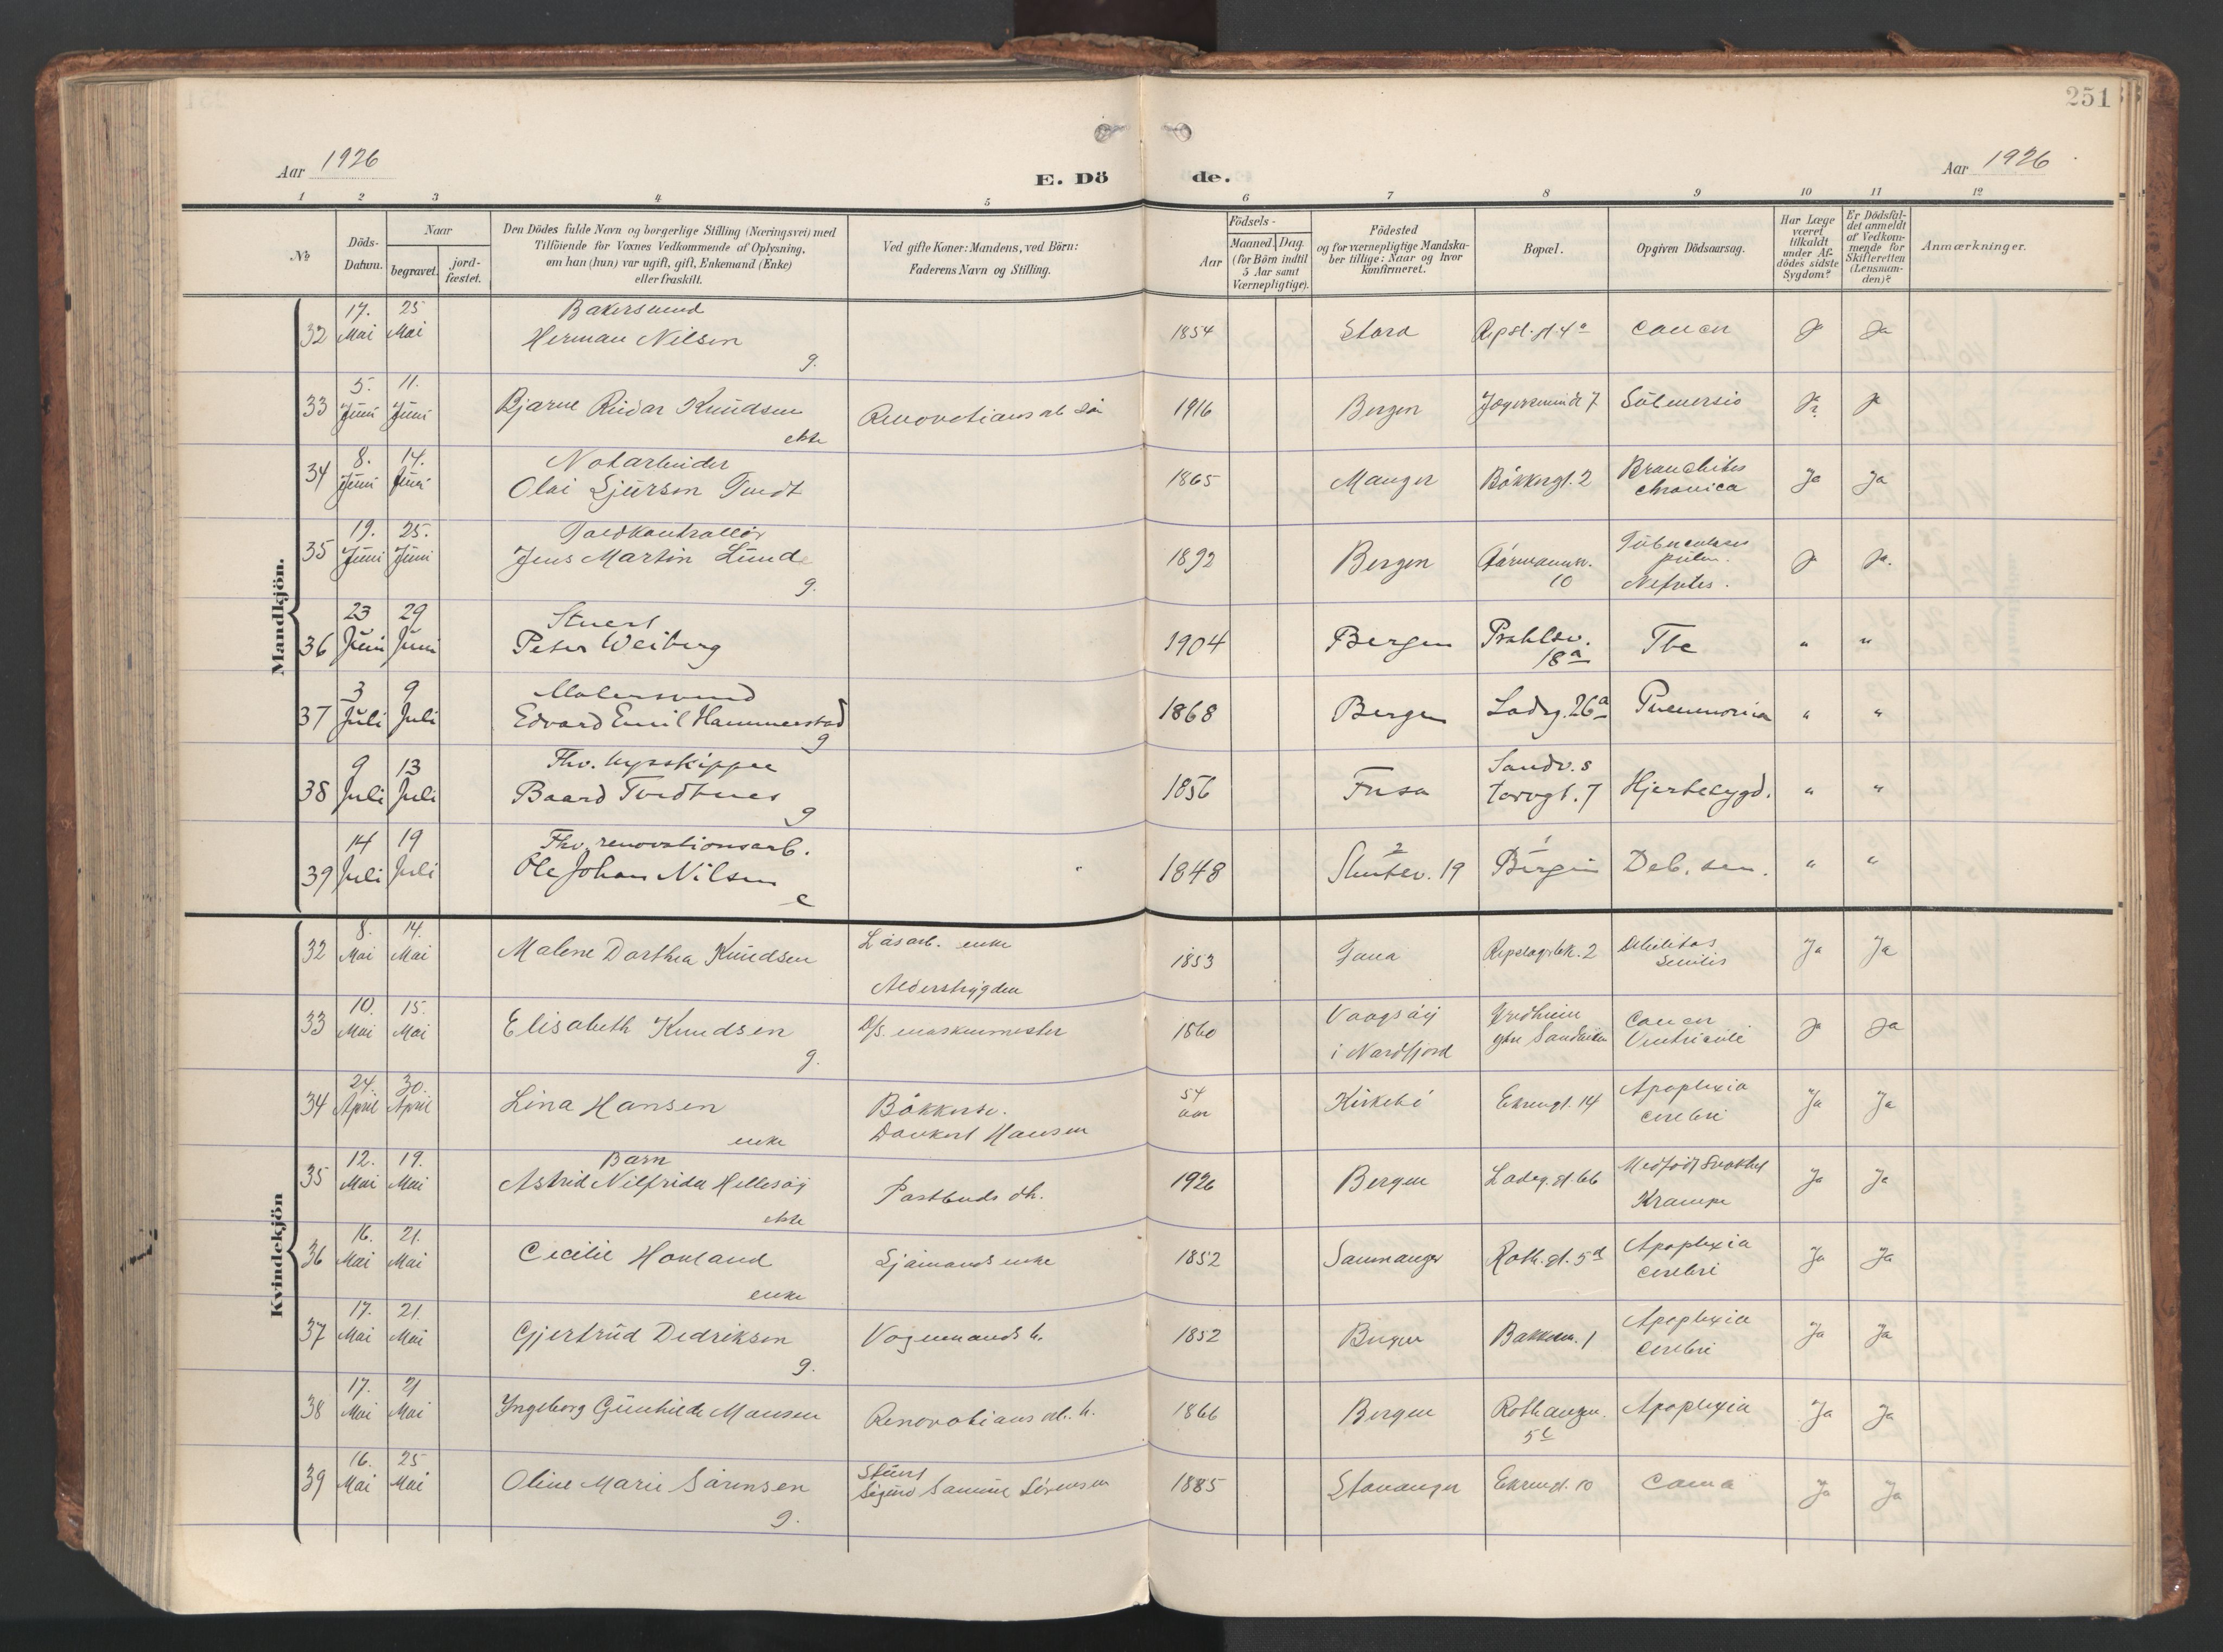 251
Aar 1926
E. Döde.
Aar 1926
1 2 3 4 5 6 7 8 9 10 11 12
No
Döds-Datum.
Naar
begravet.
jord-fæstet.
Den Dödes fulde Navn og borgerlige Stilling (Næringsvei) med
Tilföiende for Voxnes Vedkommende af Oplysning,
om han (hun) var ugift, gift, Enkemand (Enke)
eller fraskilt.
Ved gifte Koner: Mandens, ved Börn:
Faderens Navn og Stilling.
Födsels-
Aar
Maaned. Dag.
(for Börn indtil
5 Aar samt
Værnepligtige).
Födested
og for værnepligtige Mandska-
ber tillige: Naar og hvor
konfirmeret.
Bopæl.
Opgiven Dödsaarsag.
Har Læge
været
tilkaldt
under Af-
dödes sidste
Sygdom?
Er Dödsfal-
det anmeldt
af Vedkom-
mende for
Skifteretten
(Lensman-
den)?
Anmærkninger.
Mandkjön.
32 17. Mai 25 Mai Herman Nilsen g. 1854 cancer Ja Ja
33 5. Juni 11. Juni Bjarne Reidar Knudsen ekte Renovationsarb. sön 1916 Bergen
34 8. Juni 14. Juni Notarbeider
Olai Sjurson Tvedt 1865 Manger Bökkergt. 2 Bronchites
chronica Ja Ja
35 19. Juni 25. Juni Toldkontrollör
Jens Martin Lunde g. 1892 Bergen 10 Tuberculosis
pulm.
Nefrites. Ja Ja.
36 23 Juni 29 Juni Stuert
Peter Weiberg 1904 Bergen Prahlsv.
18a Tbc " "
37 3 Juli 9 Juli Malersvend
Edvard Emil Hammerstad g 1868 Bergen Ladg. 26a Pneumonia " "
38 9 Juli 13 Juli Fhv. nysskipper
Baard Tvedtnes g 1856 Fusa Sandv.s
torvgt. 7 Hjertesygd. " "
39 14 Juli 19 Juli Fhv. renovationsarb.
Ole Johan Nilsen e 1848 2 Slentev. 19 1 Bergen Deb. sen. " "
Kvindekjön
32 8. Mai 14. Mai Malene Dorthea Knudsen Løsarb. enke 1853 Fana Repslagerbk. 2 Debilitas
senilis Ja Ja
33 10. Mai 15. Mai Elisabeth Knudsen g. D/s. maskinmester 1860 Vaagsöy
i Nordfjord cancer
Ventriculi Ja Ja
34 24. April 30. April Lina Hansen enke Bökkersv.
Hansen 54 aar Kirkebö Ekrengt. 14 Apoplexia
cerebri Ja Ja
35 12. Mai 19. Mai Barn
Astrid Nilfrida Hellesöy ekte Postbuds dt. 1926 Bergen Ladeg. gt 66 Medfödt Svakhet
Krampe Ja Ja
36 16. Mai 21. Mai Cecilie Hovland enke Sjömands enke 1852 Sammanger Roth. gt. 5d Apoplexia
cerebri Ja Ja
37 17. Mai 21. Mai Gjertrud Dedriksen g. Vognmands h. 1852 Bergen 1 Apoplexia
cerebri Ja Ja
38 17. Mai 21 Mai Yngeborg Gunhilde Monsen Renovationsarb. h. 1866 Bergen Rothaugen.
5c Apoplexia Ja Ja
39 16. Mai 25 Mai Oline Marie Sörensen g. Stuert
Sigurd Samuel Sörensen 1885 Stavanger Ekrengt. 10 Coma Ja Ja